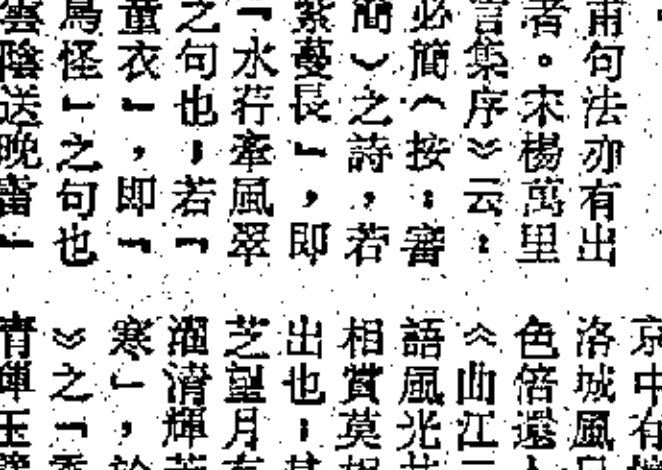 甫句法亦有出
者。宋楊萬里
言集序》云：
必簡（按：審
簡）之詩，若
紫蔓長」，即
「水荇牽風翠
之句也；若「
童衣」，即「
鳥怪」之句也
雲陰送晚雷」
京中有
洛城風
色倍還
《曲江二
語風光共
相賞莫相
出也；其
芝望月有
濯清輝若
寒」，於
》之「香
清輝玉臂